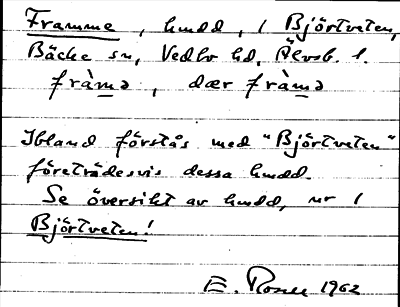 Framme, hmdd, 1 Björtveten,
Bäcke sn, Vedbo hd, Älvsb. l.
fràmə, dær fràmə
Ibland förstås med "Björtveten"
företrädesvis dessa hmdd.
Se översikt av hmdd, nr 1
Björtveten!
E. Rosen 1962